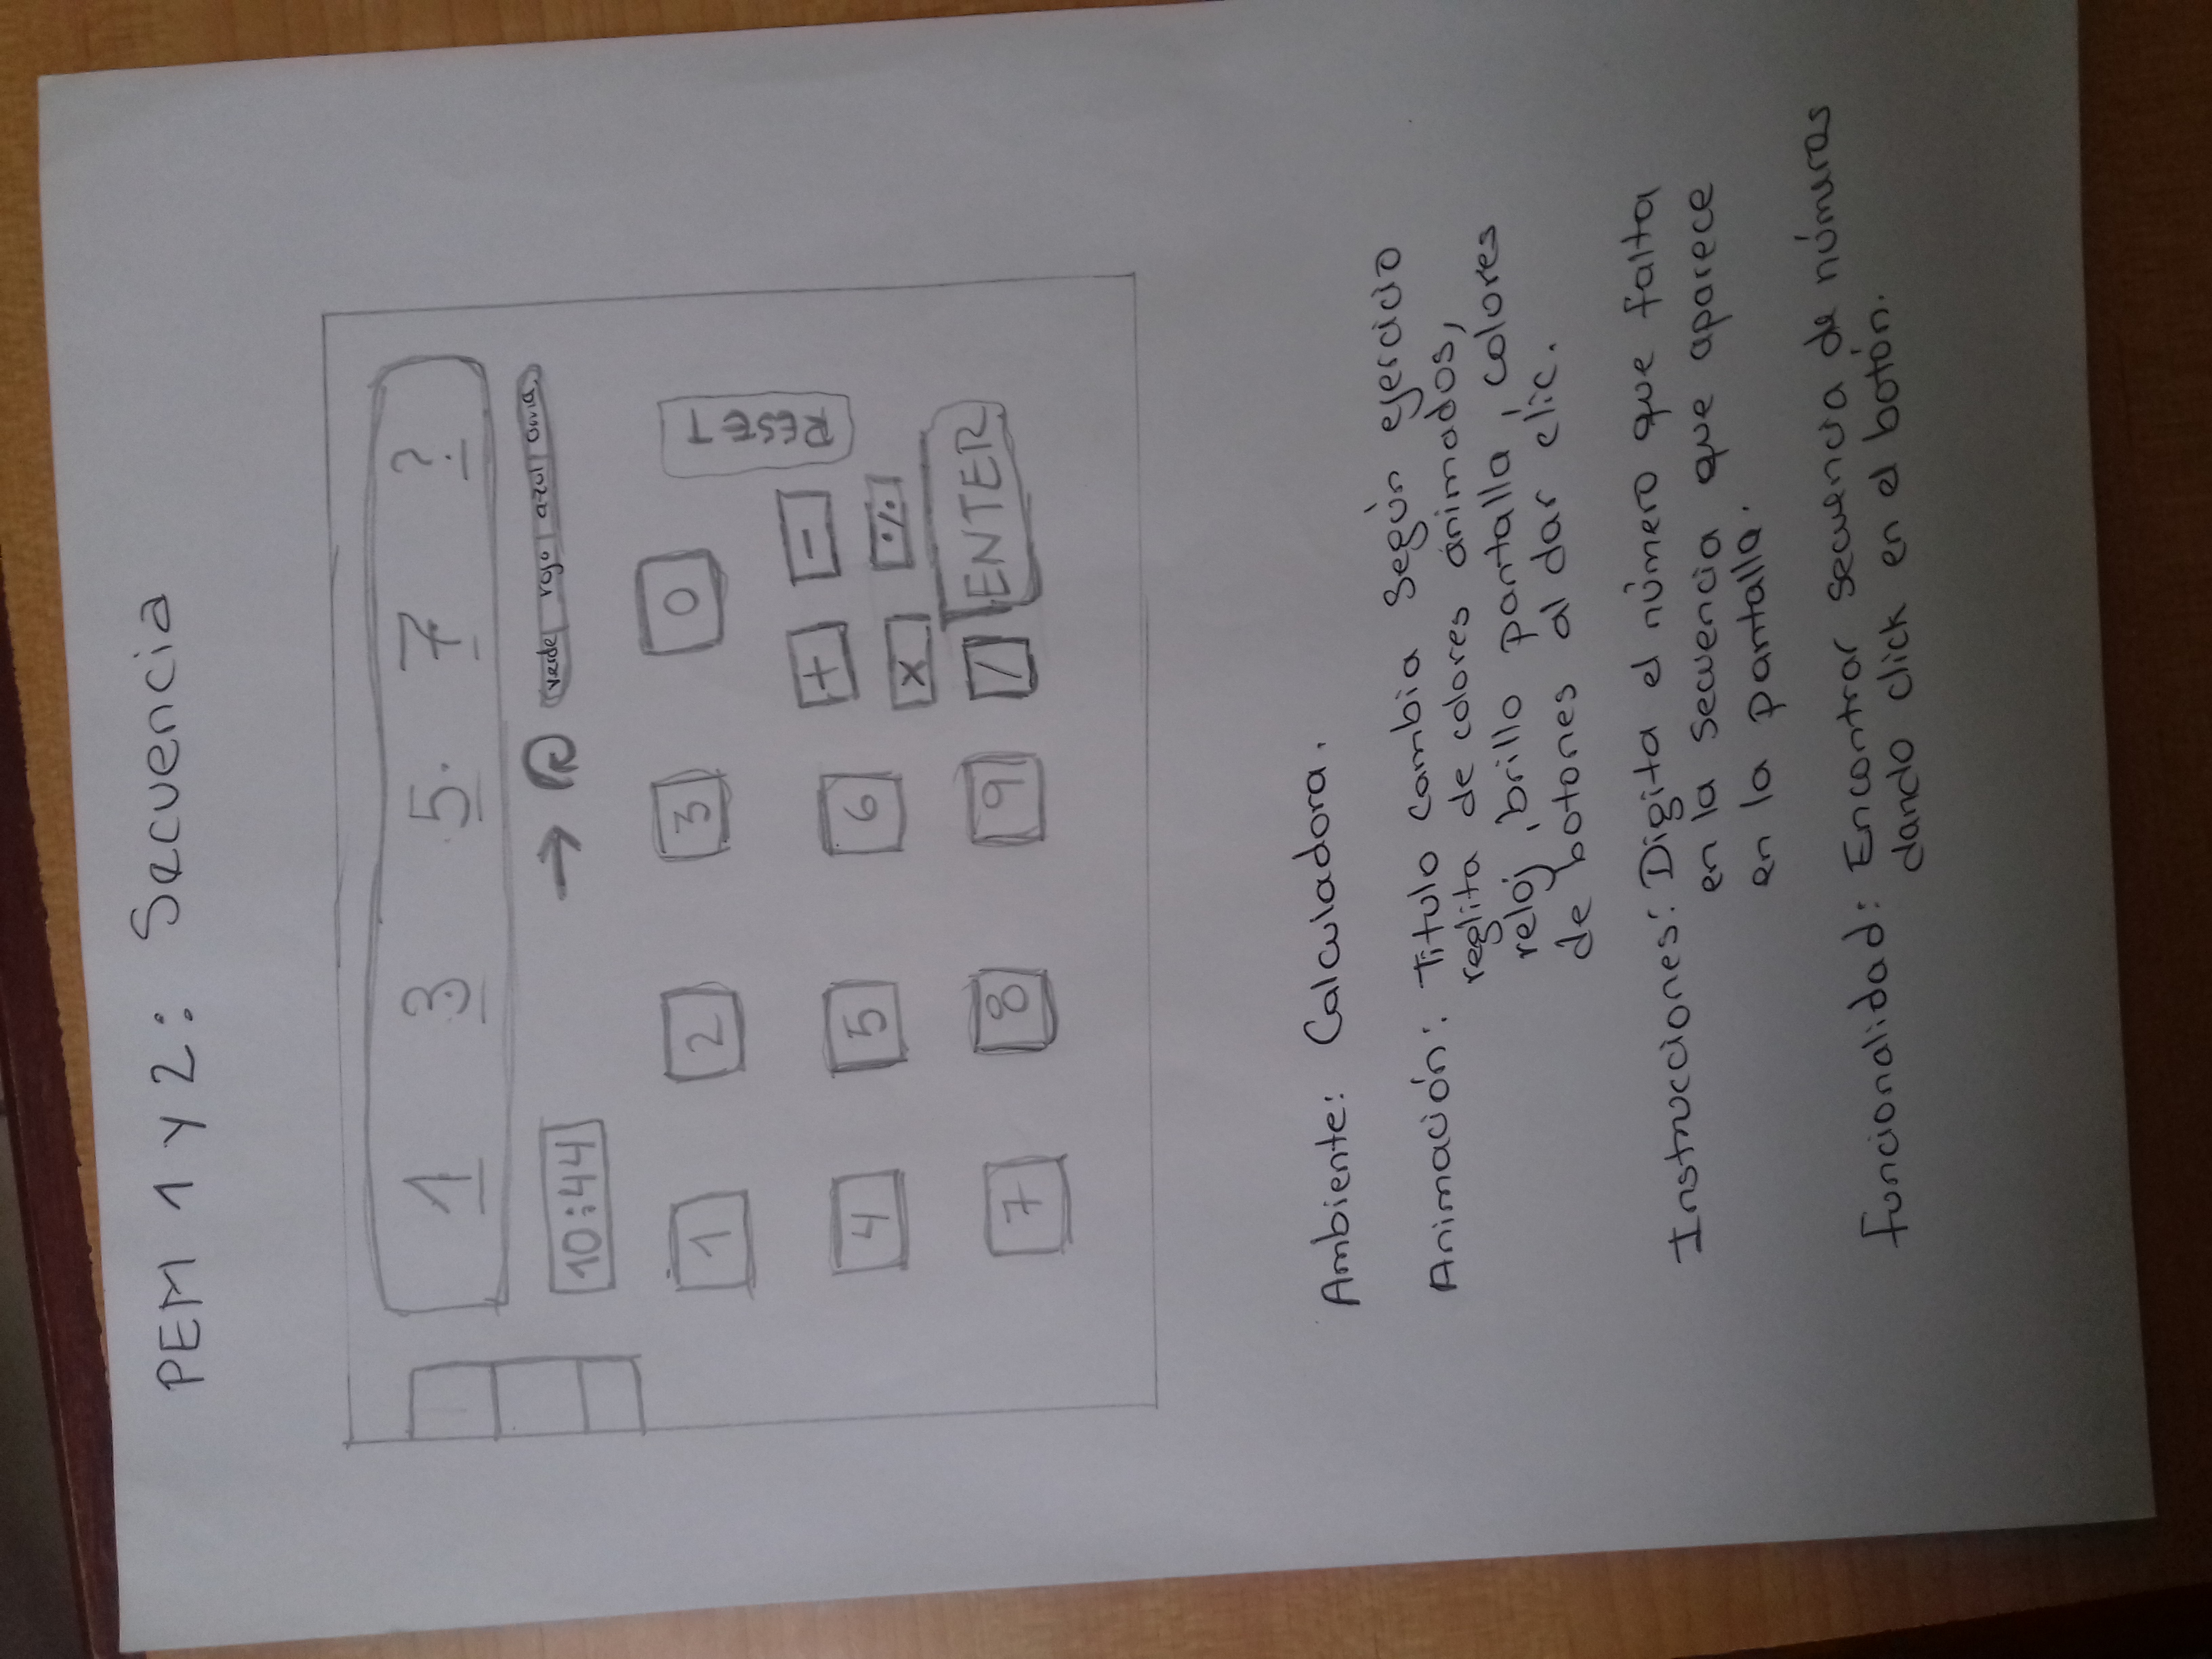 PEM 1 y 2: Secuencia
1 3 5 7 ?
10:44 → R verde rojo azul
1 2 3 0
RESET
+ -
4 5 6
x %
7 8 9 / ENTER
Ambiente: Calculadora.
Animación: Titulo cambia según ejercicio
reglita de colores animados,
reloj, brillo pantalla, colores
de botones al dar clic.
Instrucciones: Digita el número que falta
en la secuencia que aparece
en la pantalla.
Funcionalidad: Encontrar secuencia de números
dando click en el botón.